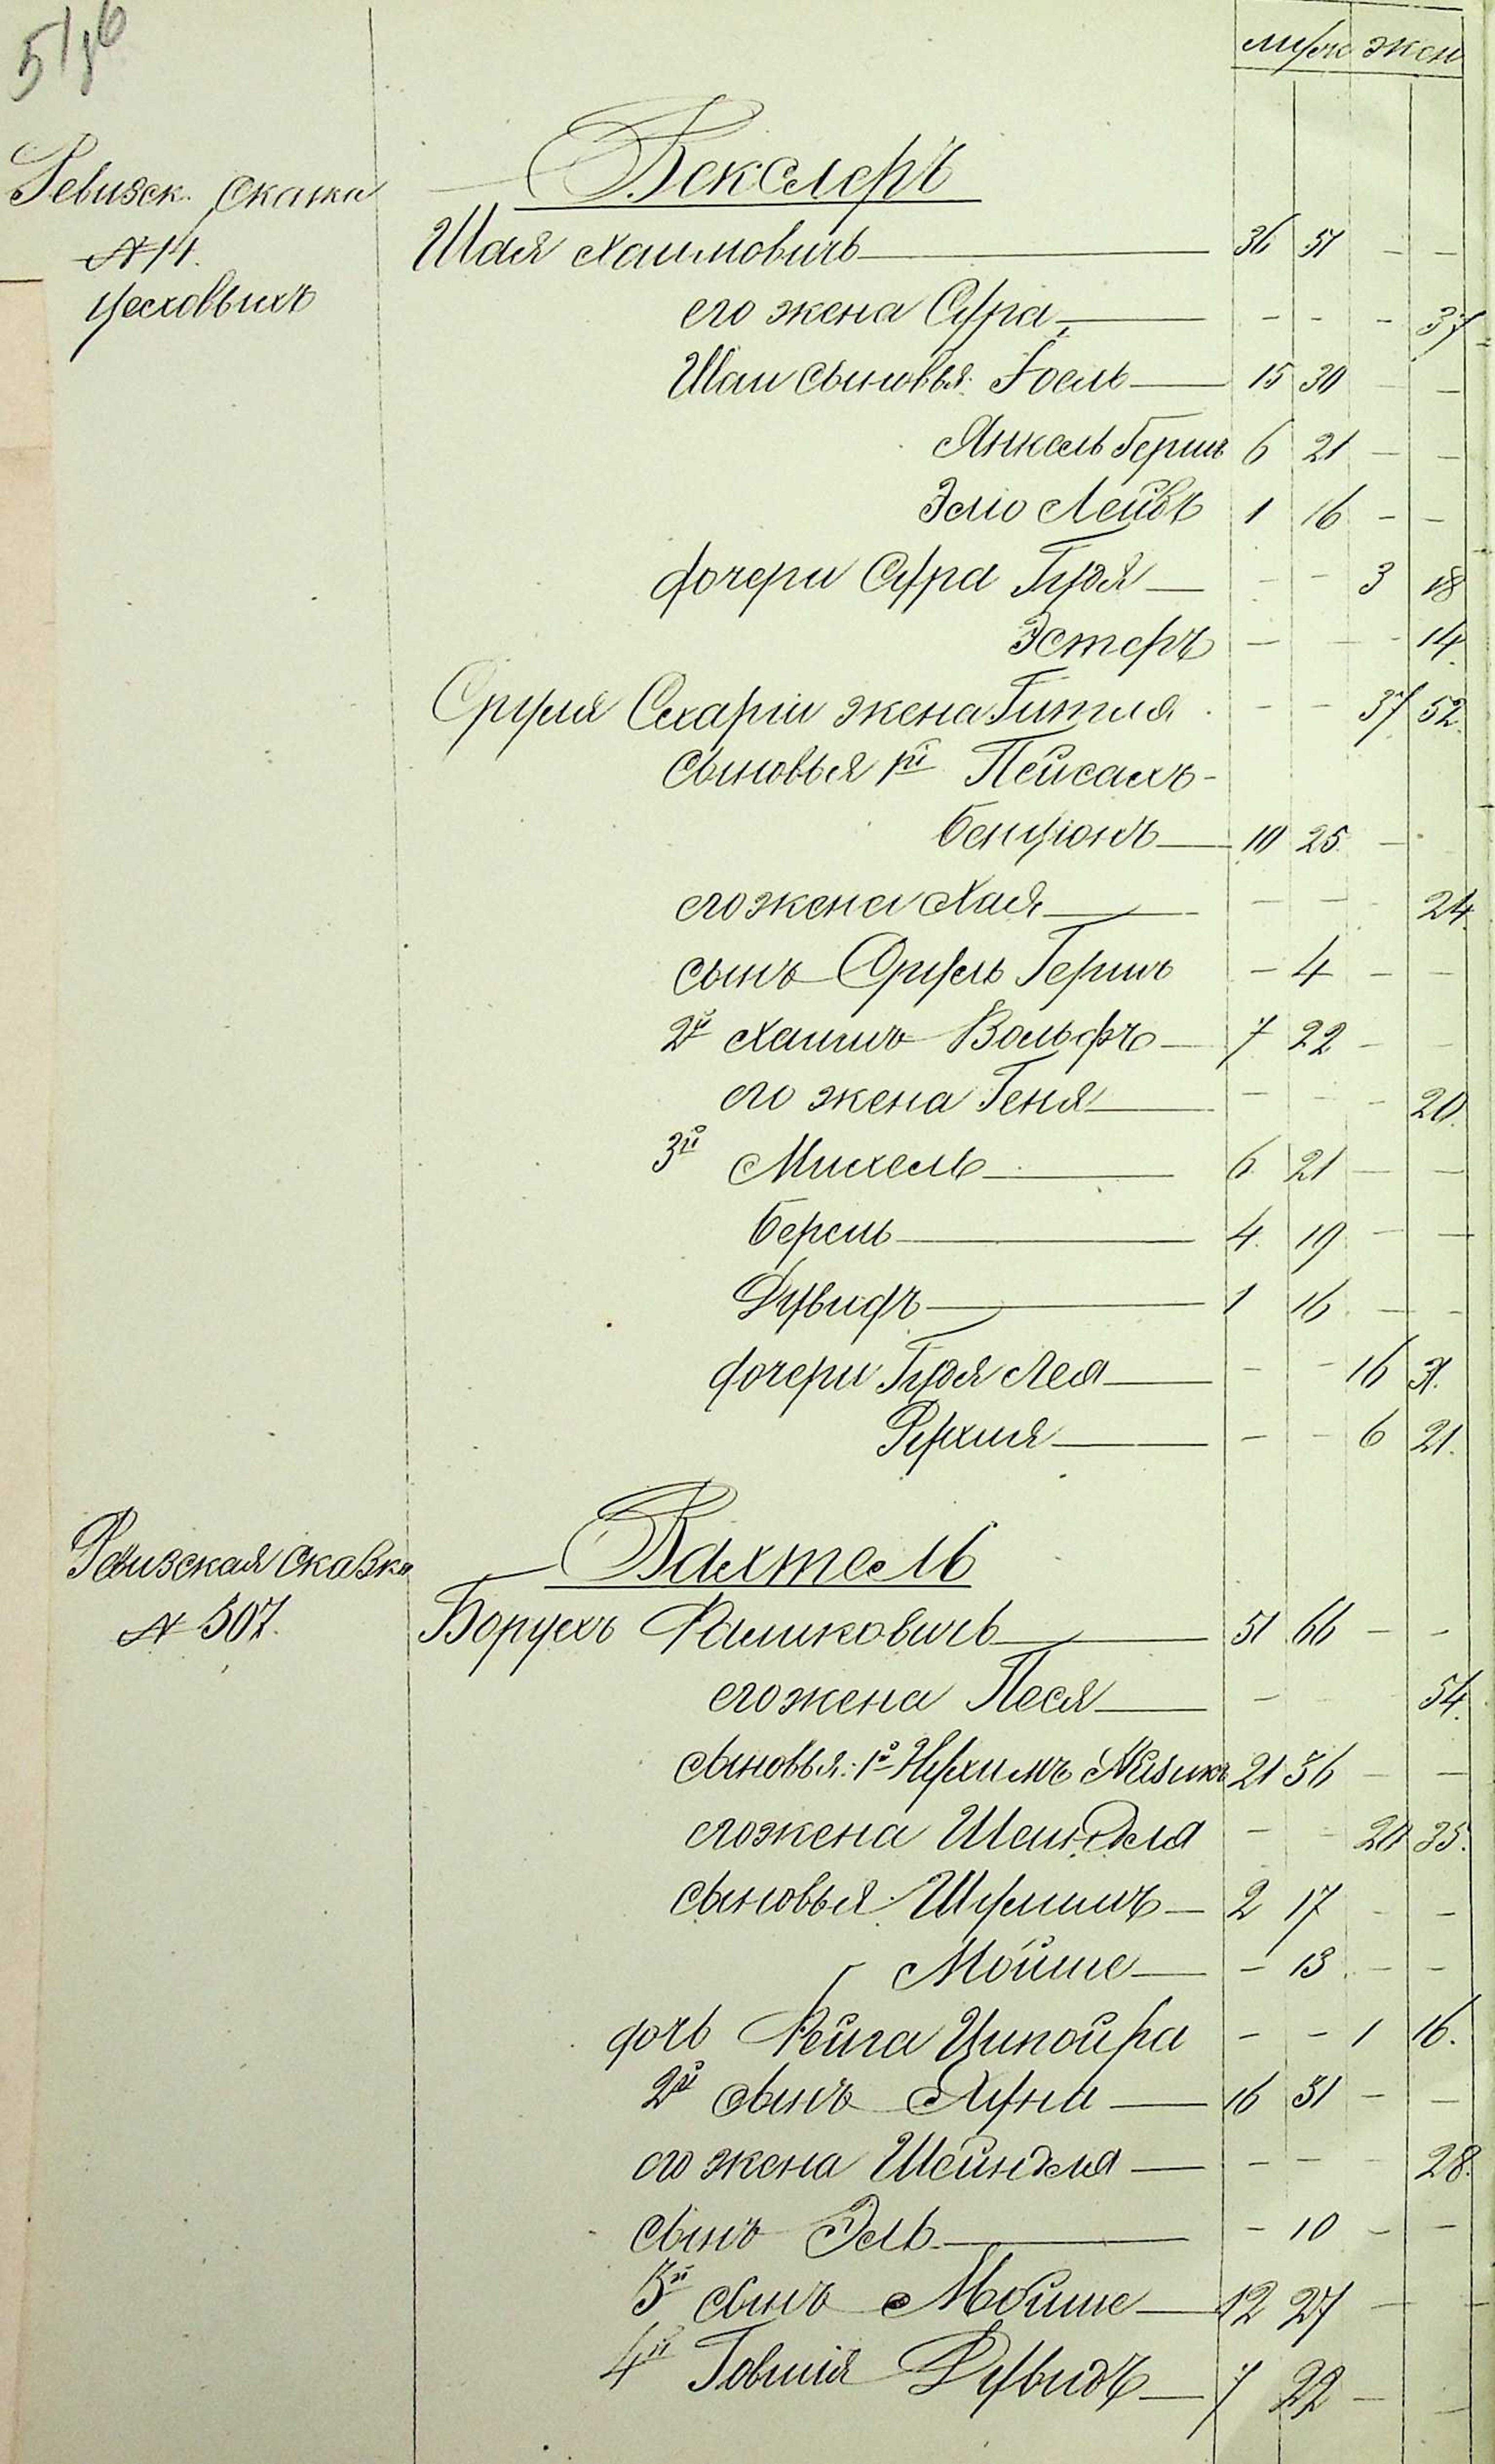 муж жен
Векслеръ
Ревизск. сказка
№ 14.
цеховыхъ
Шая Хаимовичъ 36 51 - -
его жена Сура - - - 37
Шаи сыновья: Іоель 15 30 - -
Янкель Герш 6 21 - -
Эліо Лейбъ 1 16 - -
дочери Сура Гудя - - 3 18
Эстеръ - - - 14.
Сруля Схаріи жена Гитля - - 37 52.
сыновья 1й Пейсахъ-
Бенціонъ 10 25 -
его жена Хая - - - 24.
сынъ Сруль Гершъ - 4 - -
2й Хаимъ Вольфъ 7 22 - -
его жена Геня - - - 20.
3й Михель 6 21 - -
Берель 4. 19 - -
Дувидъ 1 16 - -
дочери Гудя Лея - - 16 31.
Рухля - - 6 21.
Вахтель
Ревизская сказка
№ 507.
Борухъ 51 66 - -
его жена Песя - 54.
сыновья: 1й Нухимъ Айзикъ 21 36 - -
его жена Шейндля - - 20 35.
сыновья Шулимъ 2 17 - -
Мойше - 13 - -
дочь Рейга Ципойра - - 1 16.
2й сынъ Хуна 16 31 - -
его жена Шейндля - - - 28.
сынъ Эль - 10 - -
3й сынъ Мойше 12 27 - -
4й Говшія Дувидъ 7 22 - -